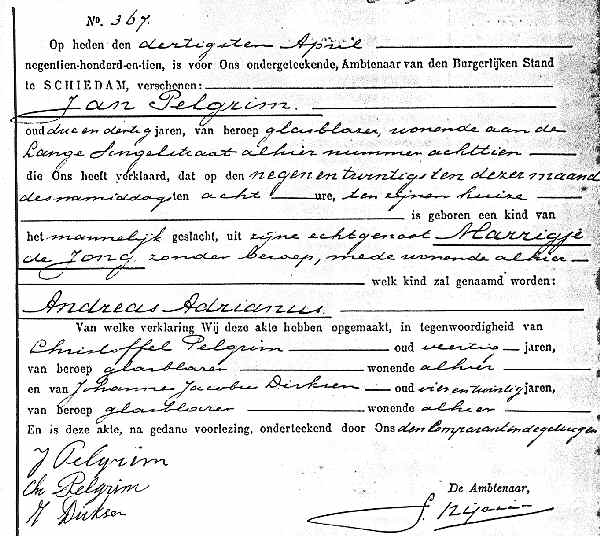 No. 367.
Op heden den dertigsten April
negentien-honderd-en-tien, is voor Ons ondergeteekende, Ambtenaar van den Burgerlijken Stand
te SCHIEDAM, verschenen:
Jan Pelgrim.
oud drie en dertig jaren, van beroep glasblazer, wonende aan de
Lange Singelstraat alhier nummer achttien
die Ons heeft verklaard, dat op den negen en twintigsten dezer maand
des namiddags ten acht ure, ten zijnen huize
is geboren een kind van
het mannelijk geslacht, uit zijne echtgenoot Marrigje
de Jong zonder beroep, mede wonende alhier
welk kind zal genaamd worden:
Andreas Adrianus.
Van welke verklaring Wij deze akte hebben opgemaakt, in tegenwoordigheid van
Christoffel Pelgrim oud veertig jaren,
van beroep glasblazer wonende alhier
en van Johannes Jacobus Dirksen oud vier en twintig jaren,
van beroep glasblazer wonende alhier
En is deze akte, na gedane voorlezing, onderteekend door Ons den Comparant en de getuigen
J Pelgrim
Chr Pelgrim
JJ Dirksen
De Ambtenaar,